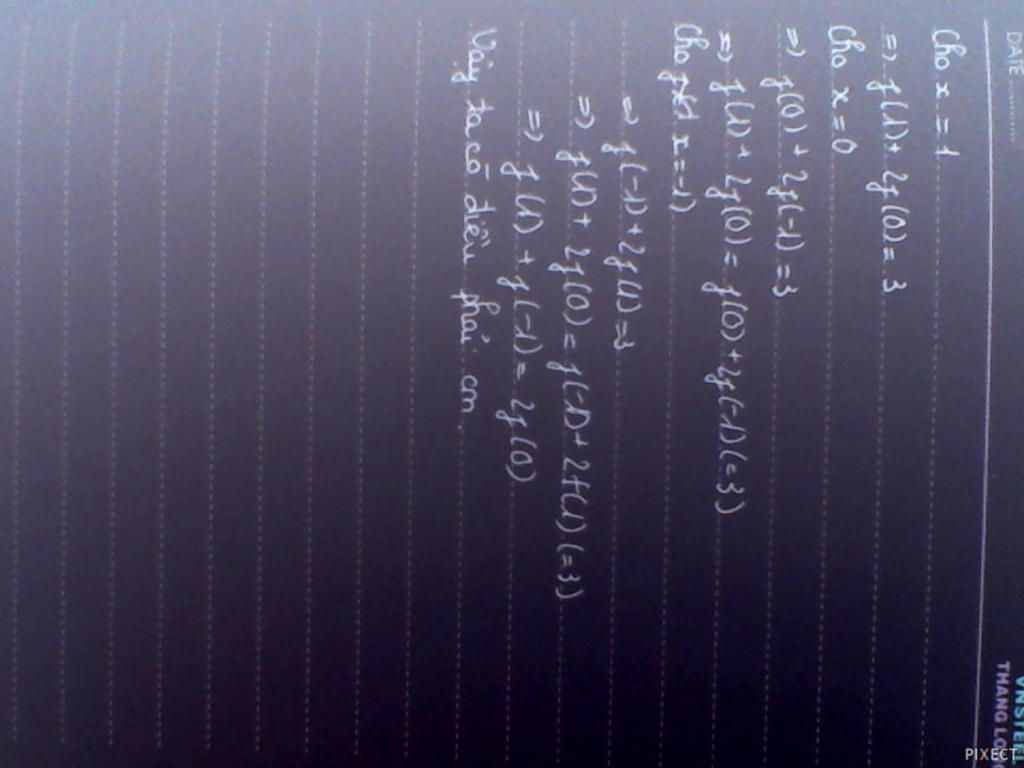 DATE
VNSTEEL
THANG LONG
Cho x = 1
=> f(1) + 2f(0) = 3
Cho x = 0
=> f(0) + 2f(-1) = 3
=> f(1) + 2f(0) = f(0) + 2f(-1) (=3)
Cho x = -1)
=> f(-1) + 2f(1) = 3
=> f(1) + 2f(0) = f(-1) + 2f(1) (=3)
=> f(1) + f(-1) = 2f(0)
Vậy ta có điều phải cm.
PIXECT